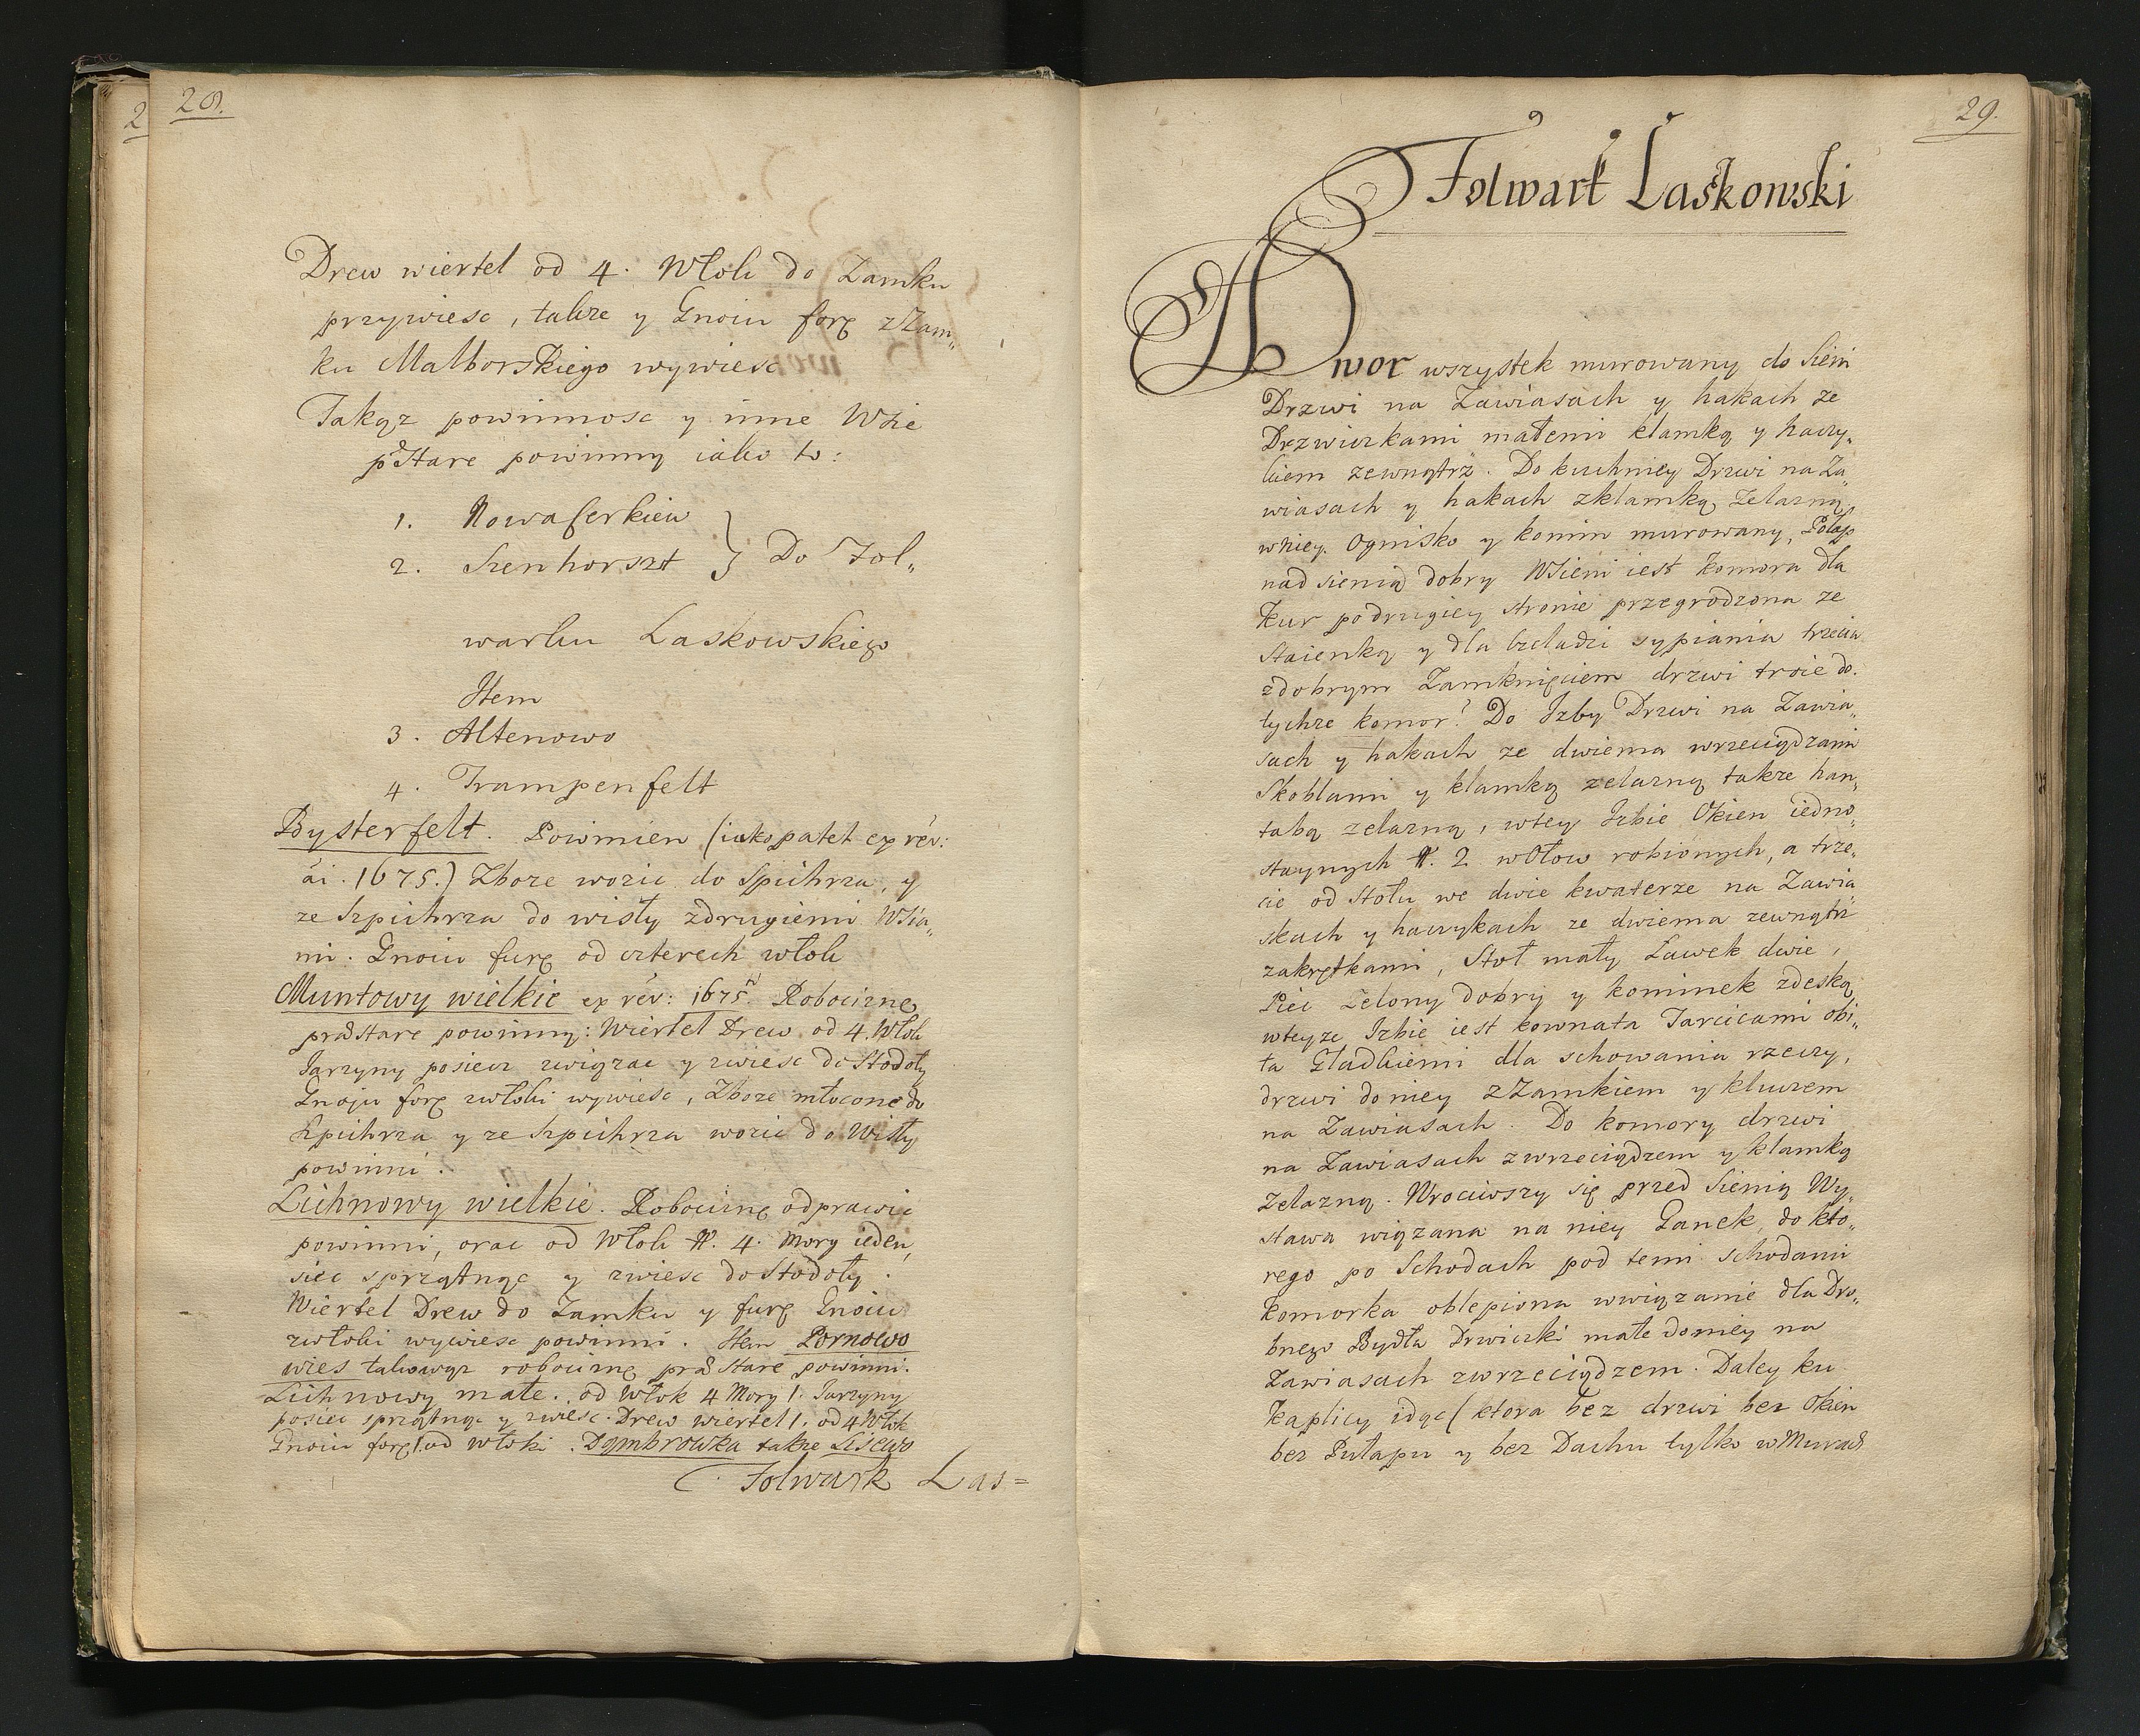 28.
Drew wiertel od 4. Włok do Zamku
przywiesc, także y Gnoiu forę z Zam„
ku Malborskiego wywiesc
Takąz powinnosc y inne Wsie
pstare powinny iako to:
1. Nowaserkiew
2. Szenhorszt } Do Fol„
warku Laskowskiego
Item
3. Altenowo
4. Trampenfelt
Bysterfelt. Powinien (iako patet ex rev:
ai. 1675.) Zboze wozic do Spichrza, y
ze Szpichrza do wisły zdrugiemi Wsia„
mi. Gnoiu furę od czterech włok
Muntowy wielkie ex rev: 1675. Robociznę
prastare powinny: Wiertel Drew od 4. Włok
Jarzyny posiecz związac y zwiesc do Stodoły
Gnoju forę zwłoki wywiesc, Zboze młocone do
Szpichrza y ze Szpichrza wozic do Wisły
powinni.
Lichnowy wielkie. Robociznę odprawic
powinni, orac od Włok N. 4. Morg ieden,
siec sprzątnąc y zwiesc do Stodoły.
Wiertel Drew do Zamku y furę Gnoiu
zwłoki wywiesc powinni. Item Pornowo
wies takowąz robociznę pra Stare powinni.
Lichnowy małe. od Włok 4 Morg 1. Jarzyny
posiec sprzątnąc y zwiesc. Drew wiertel 1. od 4 Włok
Gnoiu forę 1. od włoki. Dąmbrowka także Lisewo
Folwark Las=
29.
Folwark Laskowski
Dwor wszystek murowany do Sieni
Drzwi na Zawiasach y hakach ze
Drzwiczkami małemi klamką y haczy„
kiem zewnątrz. Do kuchniey Drzwi na Za„
wiasach y hakach zklamką zelazną,
wniey. Ognisko y komin murowany, Połap
nad sienią dobry Wsieni iest Komora dla
Kur podrugiey stronie przegrodzona ze
Staienką y dla czeladzi sypiania trzecia
zdobrym Zamknięciem drzwi troie do.
tychze komor? Do Izby Drzwi na Zawia„
sach y hakach ze dwiema wrzeciądzami
Skoblami y klamką zelazną takze han„
tabą zelazną, wtey Izbie Okien iedno„
staynych N. 2 wOłow robionych, a trze„
cie od Stołu we dwie kwaterze na Zawia„
skach y haczykach ze dwiema zewnątrz
zakrętkami, Stoł mały Ławek dwie,
Piec zelony dobry y kominek zdeską
wteyze Izbie iest kownata Tarcicami obi„
ta Gładkiemi dla schowania rzeczy,
drzwi doniey zZamkiem y kluczem
na Zawiasach. Do komory drzwi
na Zawiasach zwrzeciądzem y klamką
zelazną. Wrociwszy się przed Sienią Wy„
stawa wiązana na niey Ganek, do kto„
rego po Schodach pod temi schodami
Komorka oblepiona wwiązanie dla Dro„
bnego Bydła Drwiczki małe doniey na
Zawiasach zwrzeciądzem. Daley ku
Kaplicy idąc (ktora bez drzwi bez Okien
bez Pułapu y bez Dachu tylko w Murach